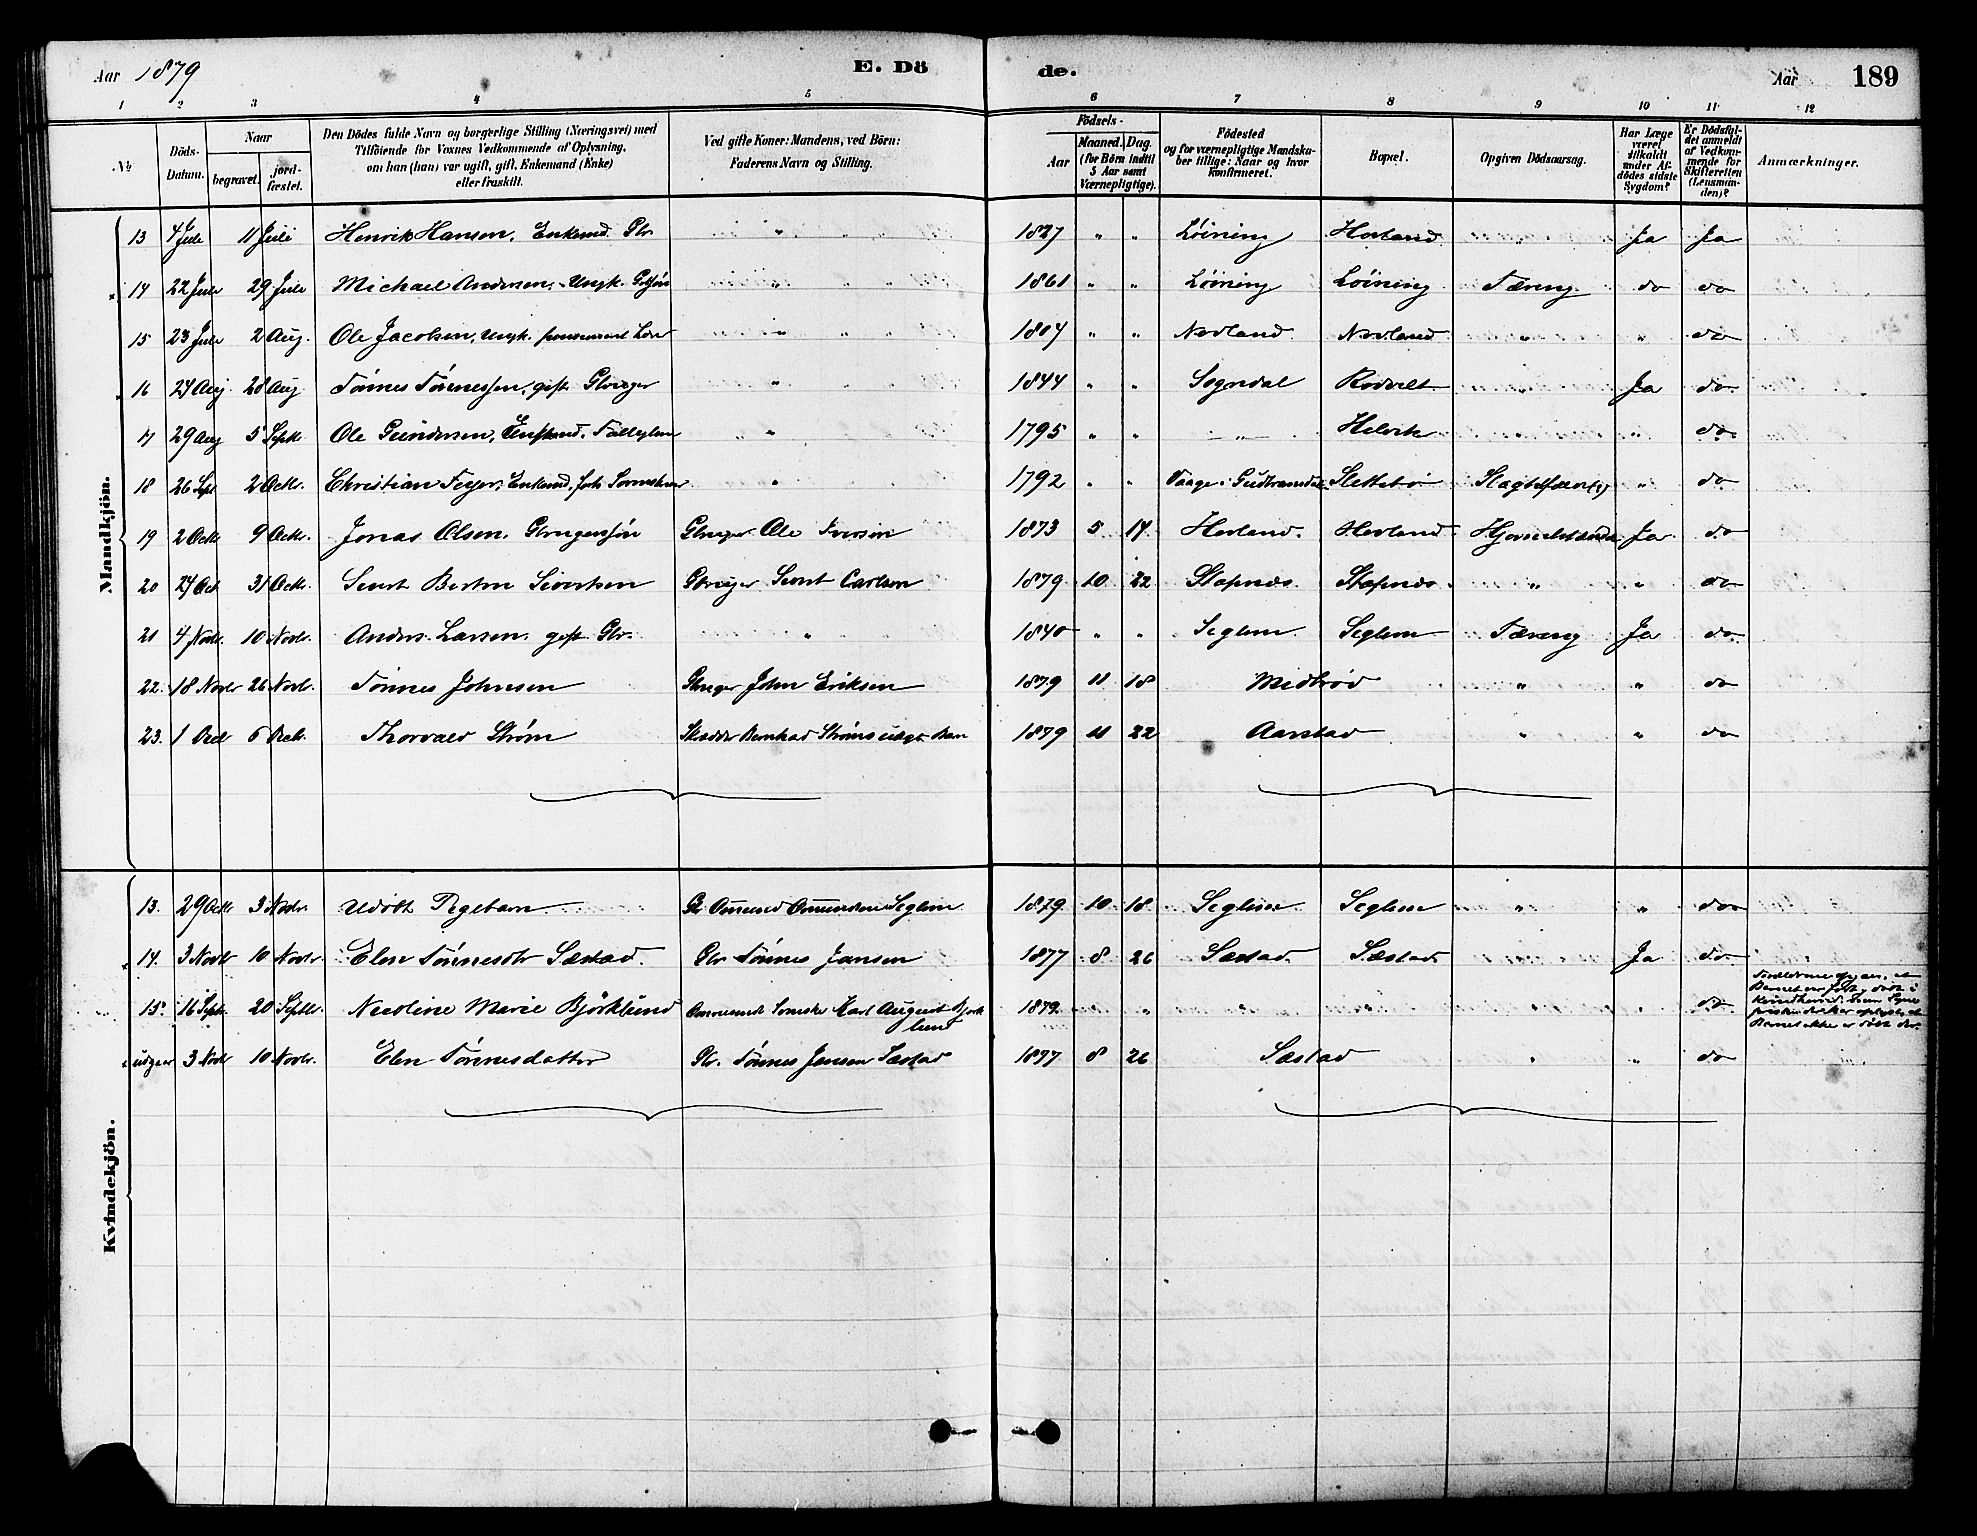 Aar 1879 E. Dö de. Aar 189
1 2 3 4 5 6 7 8 9 10 11 12
№ Döds-Datum. Naar begravet. jordfæstet. Den Dödes fulde Navn og borgerlige Stilling (Næringsvei) med Tilföiende for Voxnes Vedkommende af Oplysning, om han (hun) var ugift, gift, Enkemand (Enke) eller fraskilt. Ved gifte Koner: Mandens, ved Börn: Faderens Navn og Stilling. Födsels- Aar Maaned. Dag. (for Börn indtil 5 Aar samt Værnepligtige). Födested og for værnepligtige Mandskaber tillige: Naar og hvor konfirmeret. Bopæl. Opgiven Dödsaarsag. Har Læge været tilkaldt under Afdödes sidste Sygdom? Er Dödsfaldet anmeldt af Vedkommende for Skifteretten (Lensmanden)? Anmærkninger.
Mandkjön.
13 4 Jule 11 Juli Henrik Hansen, Enkemd. Gbr. " 1827 " " Løining Hovland " Ja Ja
14 22 Jule 29 Jule Michael Andersen, Ungk. " 1861 " " Løining Løining Tæring do do
15 23 Jule 2 Aug. Ole Jacobsen, Ungk. " 1804 " " Nodland Nodland " " do
16 24 Aug 28 Aug Tönnes Tönnessen, gift Gbruger " 1844 " " Sogndal " Ja do
17 29 Aug 5 Septr Ole Gundersen, " 1795 " " " Helvik " " do
18 26 Sept 2 Octr. Christian Feyer, Enkemd. " 1792 " " Vaage i Gudbransdal Slettebö " do
19 2 Octr 9 Octr. Jonas Olsen, Gbrugersøn Gbruger Ole Iversen 1873 5 17 Hovland. Hovland Ja do
20 27 Oct 31 Octr. Sivert Bertin Sivertsen Gbruger Sivert Carlsen 1879 10 22 Stapnæs Stapnæs " " do
21 4 Novbr. 10 Novbr. Anders Larsen, gift Gbr. " 1840 " " Seglem Seglem Tæring Ja do
22. 18 Novbr 26 Novbr. Tönnes Johnsen Gbruger John Eriksen 1879 11 18 Midbrød " " do
23. 1 Decbr 6 Decbr. Thorvald Strøm 1879 11 22 Aarstad " " do
Kvindekjön.
13. 29 Octr 3 Novbr. Udöbt Pigebarn Gbr Seglem 1879 10 18 Seglem Seglem " " do
14. 3 Novbr 10 Novbr. Elen Tönnesdtr Sæstad. Gbr Tönnes Jansen 1877 8 26 Sæstad Sæstad Ja do
15. 16 Septr. 20 Septbr. Nicoline Marie Björklund Karl August Björklund 1879 " " " " " do
udgaar 3 Novbr 10 Novbr. Elen Tönnesdatter Gbr. Tönnes Jansen Sæstad 1877 8 26 Sæstad " " do